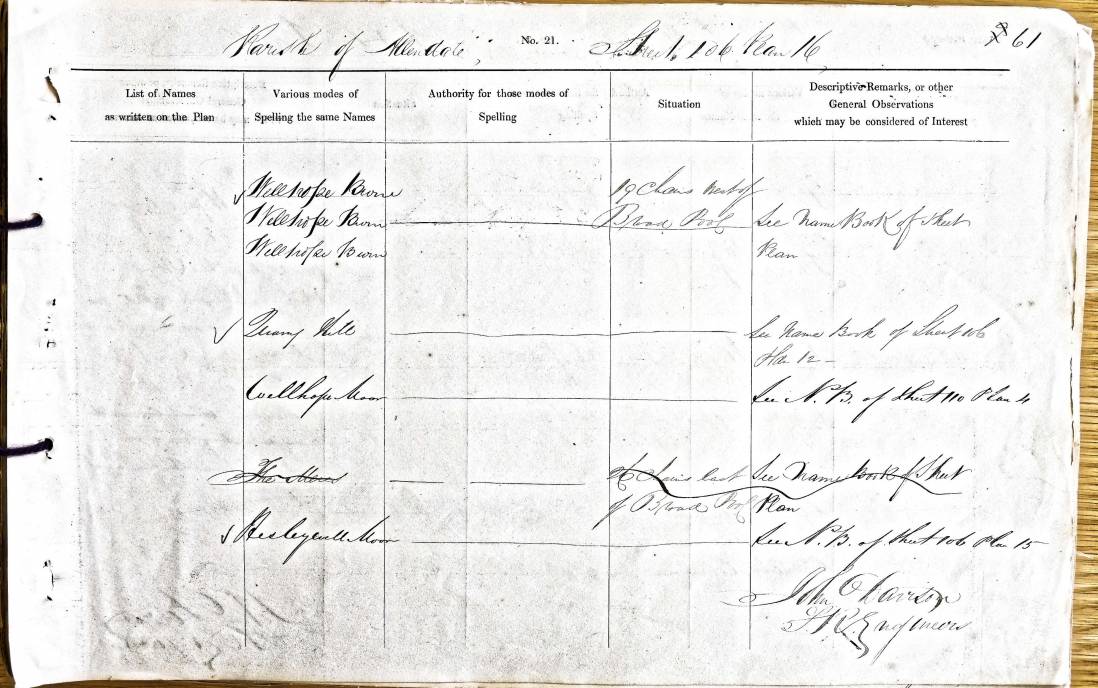 Parish of Allendale, No. 21. Sheet 106 Plan 16 61
List of Names as written on the Plan
Various modes of Spelling the same Names
Authority for those modes of Spelling
Situation
Descriptive Remarks, or other General Observations which may be considered of Interest
Wellhope Burn 19 Chains West of
Wellhope Burn Broad Pool See Name Book of Sheet
Wellhope Burn Plan
Quarry Hill See Name Book of Sheet 106
Plan 12
Wellhope Moor See N.B. of Sheet 110 Plan 4
The Moss Chains East See Name Book of Sheet
of Broad Pool Plan
Hesleywell Moor See N.B. of Sheet 106 Plan 15
John O Davison
R. Engineers